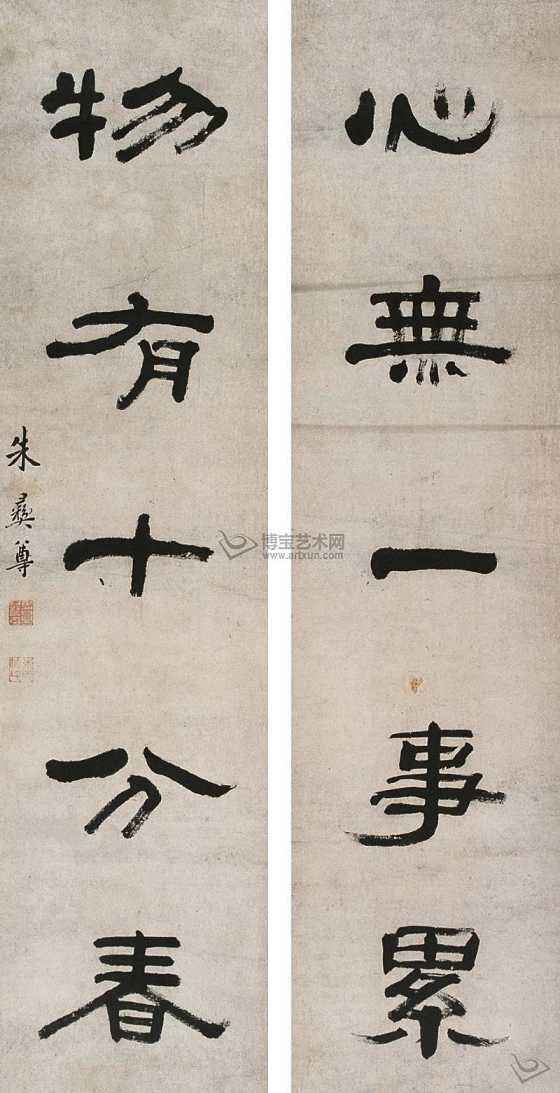 心無一事累
物有十分春
朱彝尊
博宝艺术网
www.artxun.com